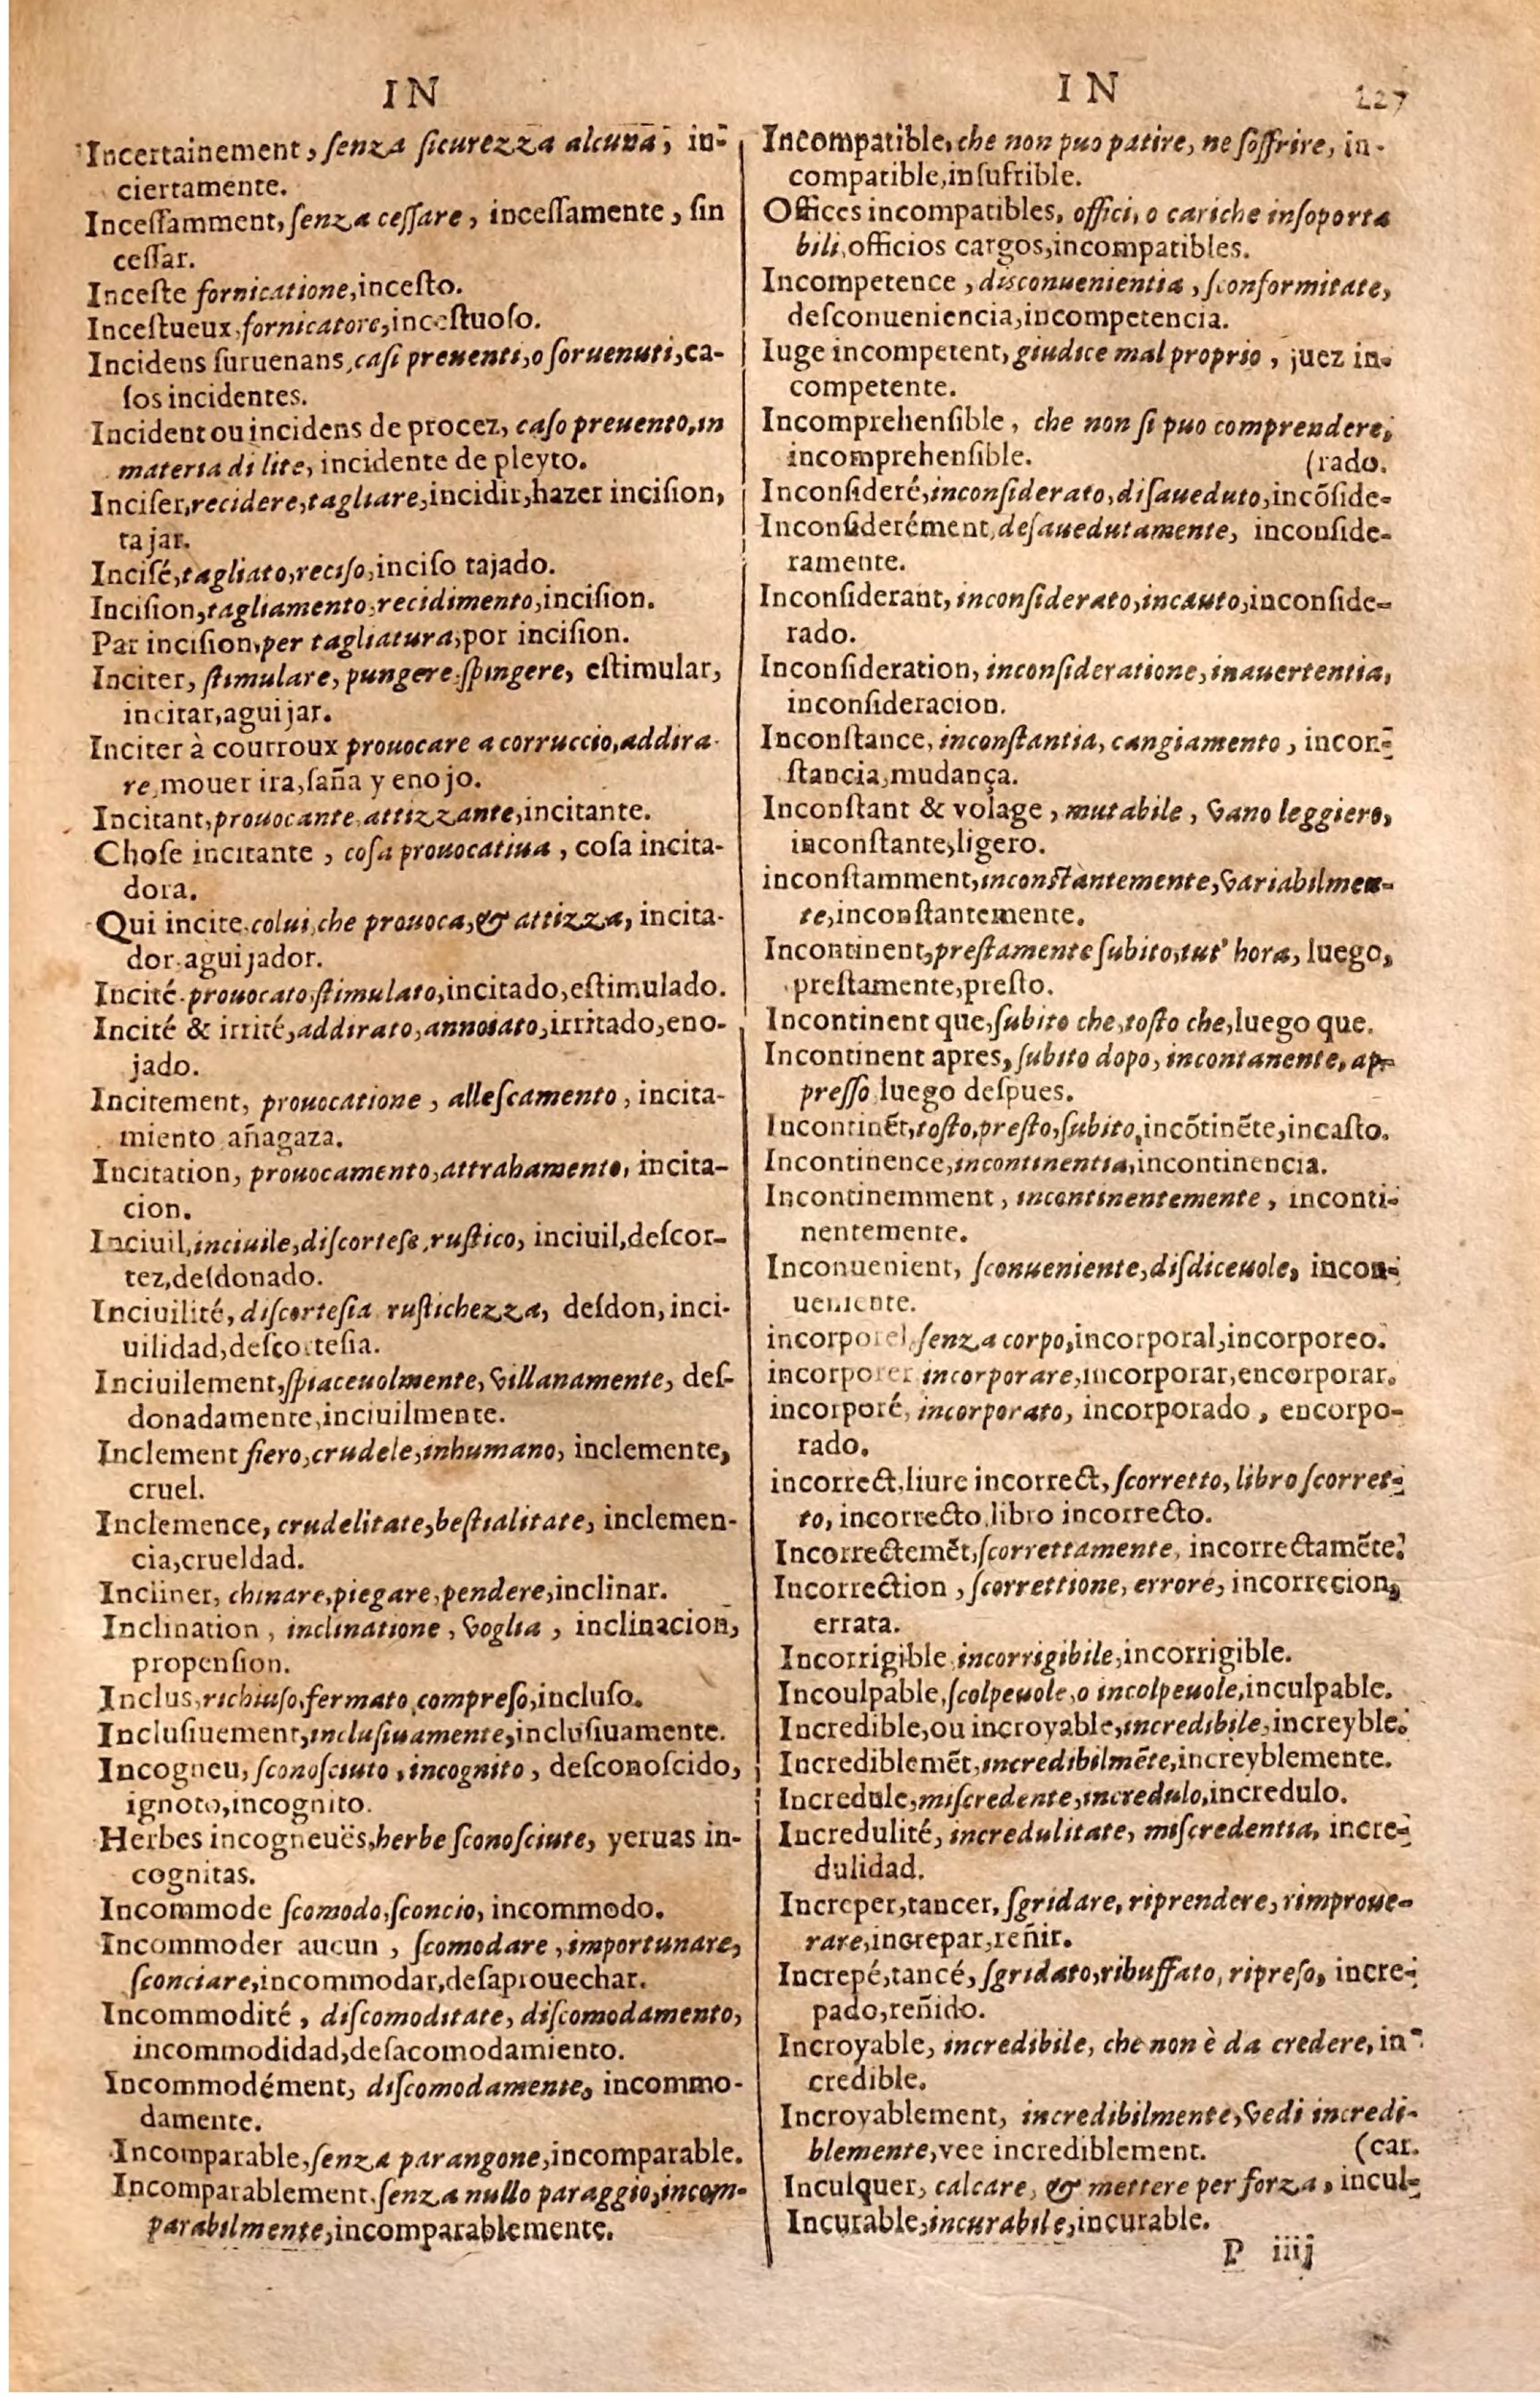 IN
Incertainement, ſenza ſicurezza alcuna, in-
ciertamente.
Inceſſamment, ſenza ceſſare, inceſſamente, ſin
ceſſar.
Inceſte fornicatione, inceſto.
Inceſtueux, fornicatore, inceſtuoſo.
Incidens ſuruenans, caſi preuenti, o ſoruenuti, ca-
ſos incidentes.
Incident ou incidens de procez, caſo preuento, in
materia di lite, incidente de pleyto.
Inciſer, recidere, tagliare, incidir, hazer inciſion,
tajar.
Inciſé, tagliato, reciſo, inciſo tajado.
Inciſion, tagliamento, recidimento, inciſion.
Par inciſion, per tagliatura, por inciſion.
Inciter, ſtimulare, pungere, ſpingere, eſtimular,
incitar, aguijar.
Inciter à courroux prouocare a corruccio, addira-
re, mouer ira, ſaña y enojo.
Incitant, prouocante, attizzante, incitante.
Choſe incitante, coſa prouocatiua, coſa incita-
dora.
Qui incite, colui, che prouoca, & attizza, incita-
dor aguijador.
Incité, prouocato, ſtimulato, incitado, eſtimulado.
Incité & irrité, addirato, annoiato, irritado, eno-
jado.
Incitement, prouocatione, alleſcamento, incita-
miento añagaza.
Incitation, prouocamento, attrahamento, incita-
cion.
Inciuil, inciuile, diſcorteſe, ruſtico, inciuil, deſcor-
tez, deſdonado.
Inciuilité, diſcorteſia ruſtichezza, deſdon, inci-
uilidad, deſcorteſia.
Inciuilement, ſpiaceuolmente, villanamente, deſ-
donadamente, inciuilmente.
Inclement fiero, crudele, inhumano, inclemente,
cruel.
Inclemence, crudelitate, beſtialitate, inclemen-
cia, crueldad.
Incliner, chinare, piegare, pendere, inclinar.
Inclination, inclinatione, voglia, inclinacion,
propenſion.
Inclus, richiuſo, fermato, compreſo, incluſo.
Incluſiuement, incluſiuamente, incluſiuamente.
Incogneu, ſconoſciuto, incognito, deſconoſcido,
ignoto, incognito.
Herbes incogneuës, herbe ſconoſciute, yeruas in-
cognitas.
Incommode ſcomodo, ſconcio, incommodo.
Incommoder aucun, ſcomodare, importunare,
ſconciare, incommodar, deſaprouechar.
Incommodité, diſcomoditate, diſcomodamento,
incommodidad, deſacomodamiento.
Incommodément, diſcomodamente, incommo-
damente.
Incomparable, ſenza parangone, incomparable.
Incomparablement, ſenza nullo paraggio, incom-
parabilmente, incomparablemente.
IN
127
Incompatible, che non puo patire, ne ſoffrire, in-
compatible, inſufrible.
Offices incompatibles, offici, o cariche inſoporta
bili, officios cargos, incompatibles.
Incompetence, disconuenientia, ſconformitate,
deſconueniencia, incompetencia.
Iuge incompetent, giudice mal proprio, juez in-
competente.
Incomprehenſible, che non ſi puo comprendere,
incomprehenſible. (rado.
Inconſideré, inconſiderato, diſaueduto, incõſide-
Inconſiderément, deſauedutamente, inconſide-
ramente.
Inconſiderant, inconſiderato, incauto, inconſide-
rado.
Inconſideration, inconſideratione, inauertentia,
inconſideracion.
Inconſtance, inconſtantia, cangiamento, incon-
ſtancia, mudança.
Inconſtant & volage, mutabile, vano leggiero,
inconſtante, ligero.
inconſtamment, inconſtàntemente, variabilmen-
te, inconſtantemente.
Incontinent, preſtamente ſubito, tut' hora, luego,
preſtamente, preſto.
Incontinent que, ſubito che, toſto che, luego que.
Incontinent apres, ſubito dopo, incontanente, ap-
preſſo luego deſpues.
Incontinẽt, toſto, preſto, ſubito, incõtinẽte, incaſto.
Incontinence, incontinentia, incontinencia.
Incontinemment, incontinentemente, inconti-
nentemente.
Inconuenient, ſconueniente, diſdiceuole, incon-
ueniente.
incorporel, ſenza corpo, incorporal, incorporeo.
incorporer incorporare, incorporar, encorporar.
incorporé, incorporato, incorporado, encorpo-
rado.
incorrect, liure incorrect, ſcorretto, libro ſcorret-
to, incorrecto, libro incorrecto.
Incorrectemẽt, ſcorrettamente, incorrectamẽte.
Incorrection, ſcorrettione, errore, incorrecion,
errata.
Incorrigible incorrigibile, incorrigible.
Incoulpable, ſcolpeuole, o incolpeuole, inculpable.
Incredible, ou incroyable, incredibile, increyble.
Incrediblemẽt, incredibilmẽte, increyblemente.
Incredule, miſcredente, incredulo, incredulo.
Incredulité, incredulitate, miſcredentia, incre-
dulidad.
Increper, tancer, ſgridare, riprendere, rimproue-
rare, increpar, reñir.
Increpé, tancé, ſgridato, ribuffato, ripreſo, incre-
pado, reñido.
Incroyable, incredibile, che non è da credere, in-
credible.
Incroyablement, incredibilmente, vedi incredi-
blemente, vee incrediblement. (car.
Inculquer, calcare, & mettere per forza, incul-
Incurable, incurabile, incurable.
P iiij